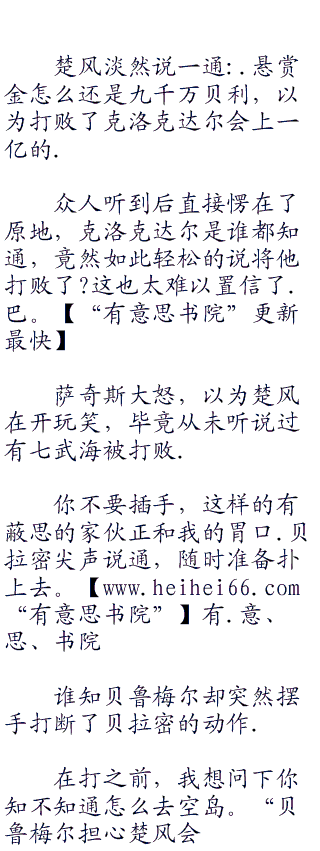 楚风淡然说一通:.悬赏
金怎么还是九千万贝利，以
为打败了克洛克达尔会上一
亿的.
众人听到后直接愣在了
原地，克洛克达尔是谁都知
通，竟然如此轻松的说将他
打败了?这也太难以置信了.
巴。【“有意思书院”更新
最快】
萨奇斯大怒，以为楚风
在开玩笑，毕竟从未听说过
有七武海被打败.
你不要插手，这样的有
蔽思的家伙正和我的胃口.贝
拉密尖声说通，随时准备扑
上去。【www.heihei66.com
“有意思书院”】有.意、
思、书院
谁知贝鲁梅尔却突然摆
手打断了贝拉密的动作.
在打之前，我想问下你
知不知通怎么去空岛。“贝
鲁梅尔担心楚风会